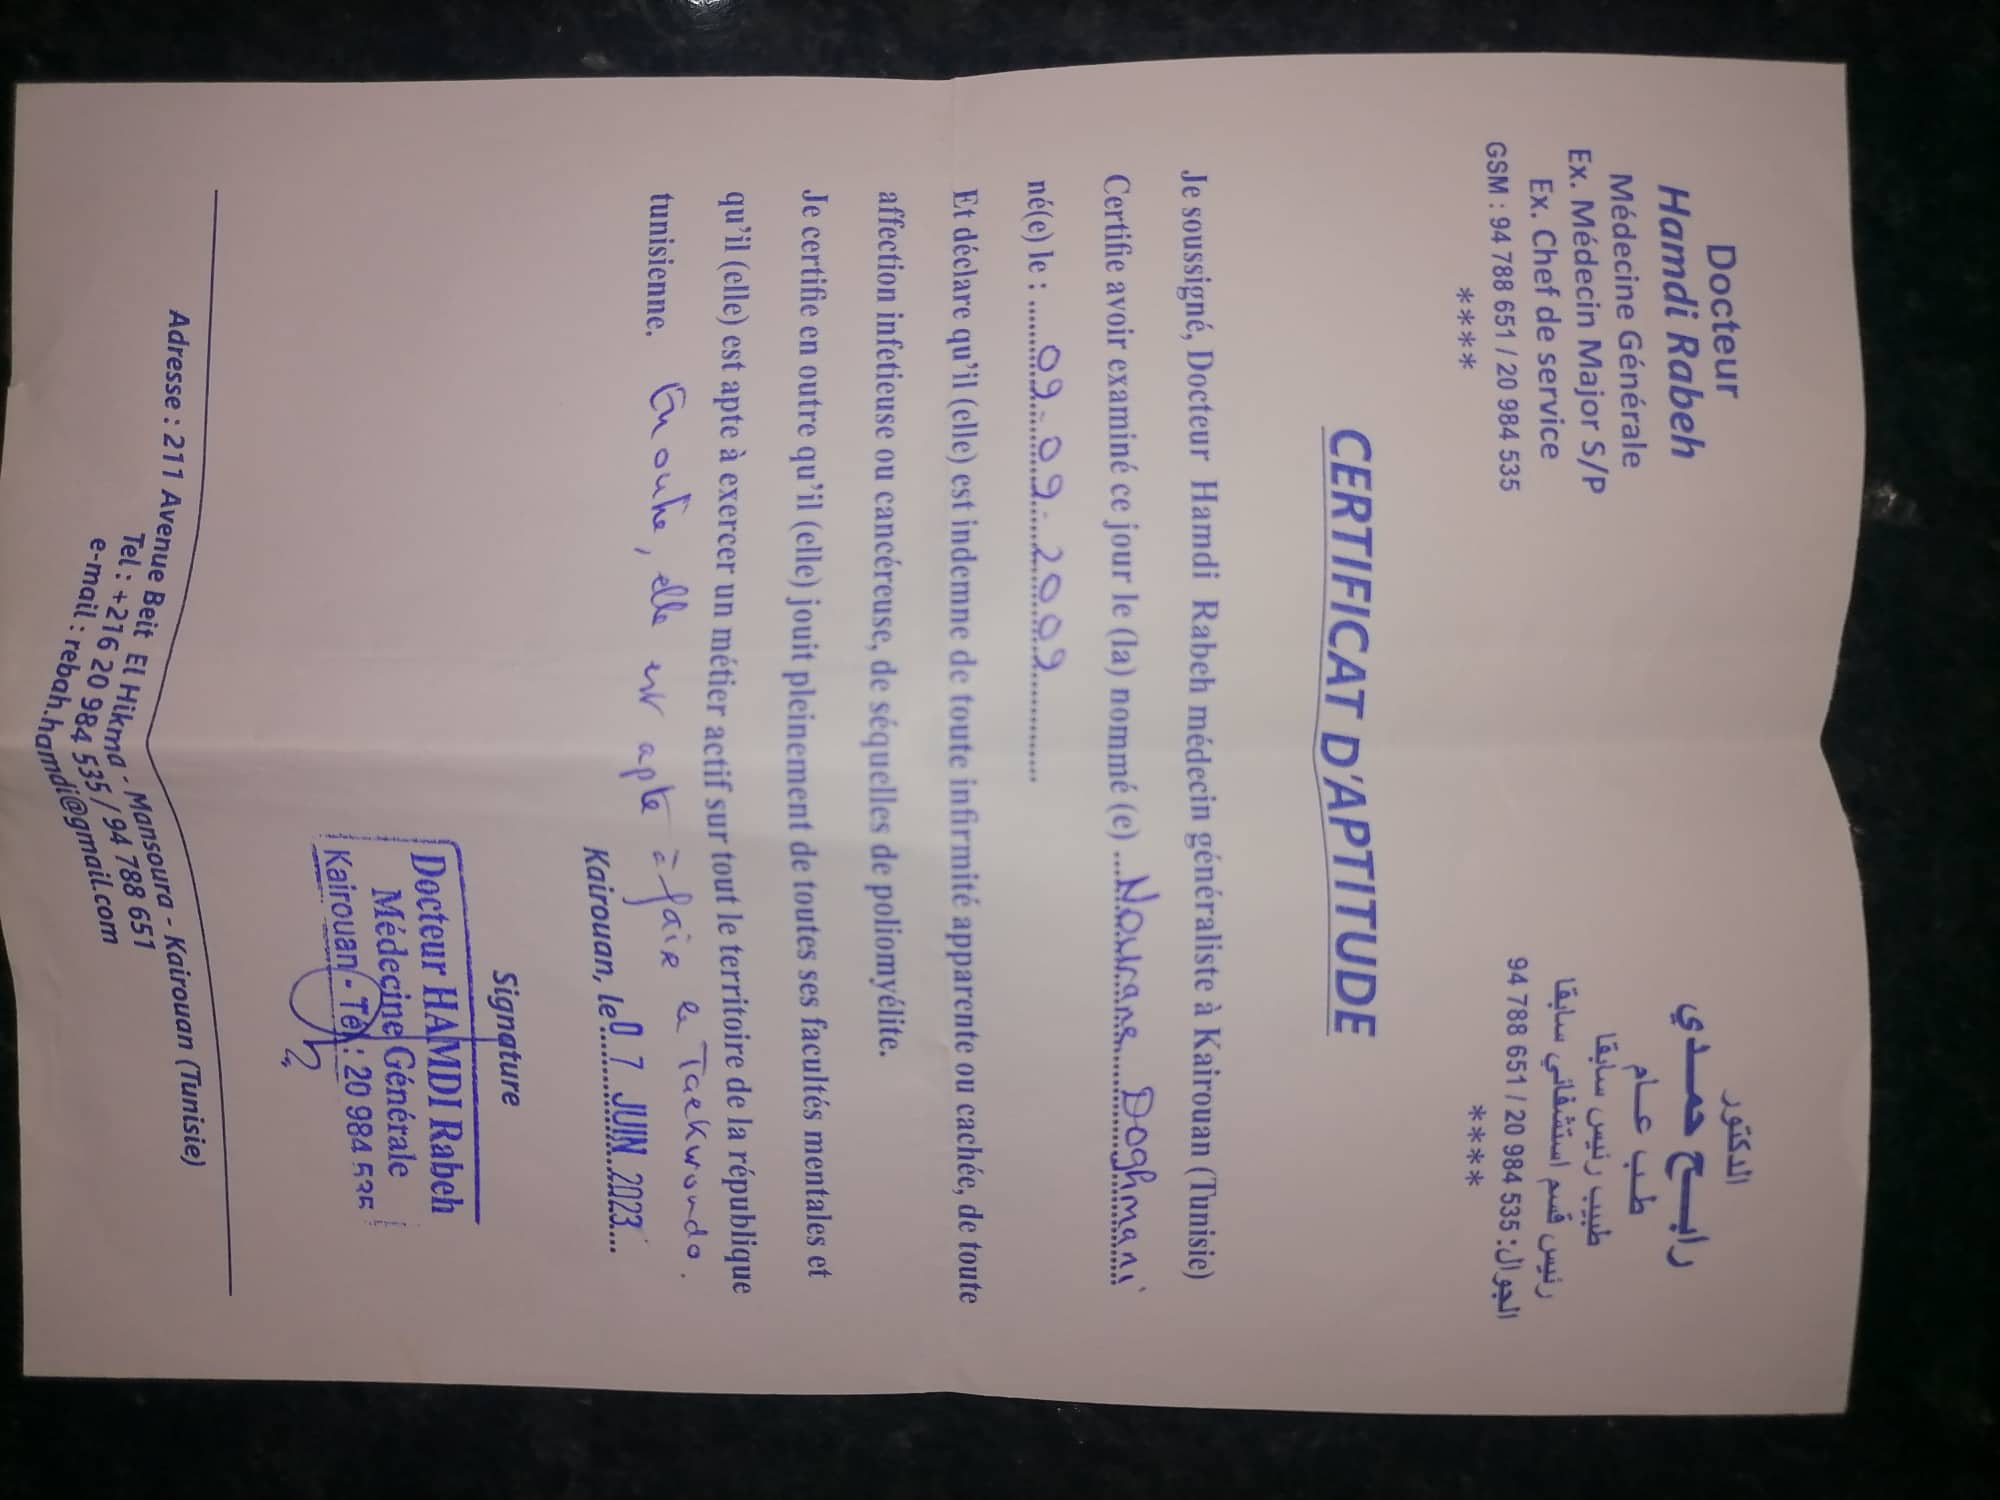 Docteur
Hamdi Rabeh
Médecine Générale
Ex. Médecin Major S/P
Ex. Chef de service
GSM : 94 788 651 / 20 984 535
****
الدكتور
رابـــح حمـــدي
طــب عـــام
طبيب رئيس سابقا
رئيس قسم استشفائي سابقا
الجوال: 94 788 651 / 20 984 535
****
CERTIFICAT D'APTITUDE
Je soussigné, Docteur Hamdi Rabeh médecin généraliste à Kairouan (Tunisie)
Certifie avoir examiné ce jour le (la) nommé (e) ...Nourane Doghmani
né(e) le : ......09-09-2009..............
Et déclare qu'il (elle) est indemne de toute infirmité apparente ou cachée, de toute
affection infetieuse ou cancéreuse, de séquelles de poliomyélite.
Je certifie en outre qu'il (elle) jouit pleinement de toutes ses facultés mentales et
qu'il (elle) est apte à exercer un métier actif sur tout le territoire de la république
tunisienne. En outre, elle est apte à fair le Taekwondo.
Kairouan, le 07 JUIN 2023....
Signature
Docteur HAMDI Rabeh
Médecine Générale
Kairouan - Tél : 20 984 535
Adresse : 211 Avenue Beit El Hikma - Mansoura - Kairouan (Tunisie)
Tel : +216 20 984 535 / 94 788 651
e-mail : rebah.hamdi@gmail.com